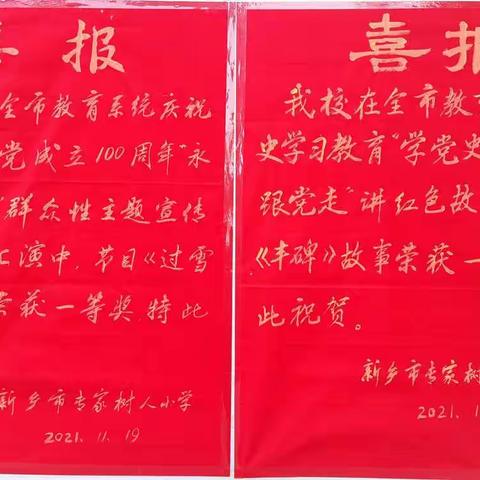 喜报
全市教育系统庆祝
党成立100周年"永
群众性主题宣传
汇演中，节目《过雪
荣获一等奖，特此
新乡市专家树人小学
2021.11.19
喜报
我校在全市教育
史学习教育"学党史
跟党走"讲红色故
《丰碑》故事荣获一
此祝贺。
新乡市专家树
2021.1